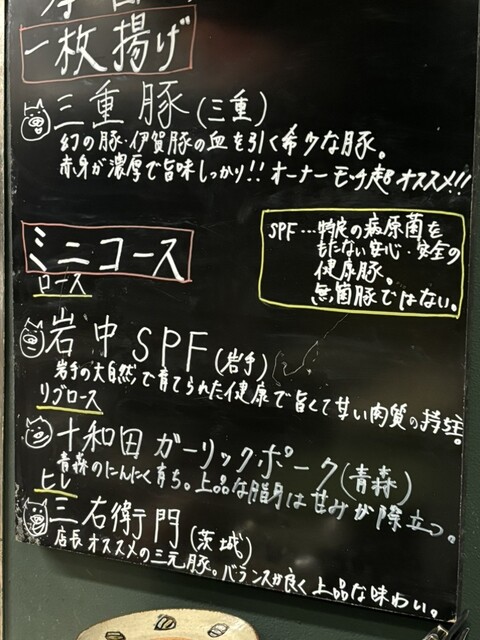 一枚揚げ
三重豚(三重)
幻の豚・伊賀豚の血を引く希少な豚。
赤身が濃厚で旨味しっかり!! オーナーモッチ超オススメ!!
SPF…特定の病原菌を
もたない安心・安全の
健康豚。
無菌豚ではない。
ミニコース
ロース
岩中SPF(岩手)
岩手の大自然で育てられた健康で旨くて甘い肉質の持主。
リブロース
十和田ガーリックポーク(青森)
青森のにんにく育ち。上品な脂身は甘みが際立つ。
ヒレ
三右衛門(茨城)
店長オススメの三元豚。バランスが良く上品な味わい。